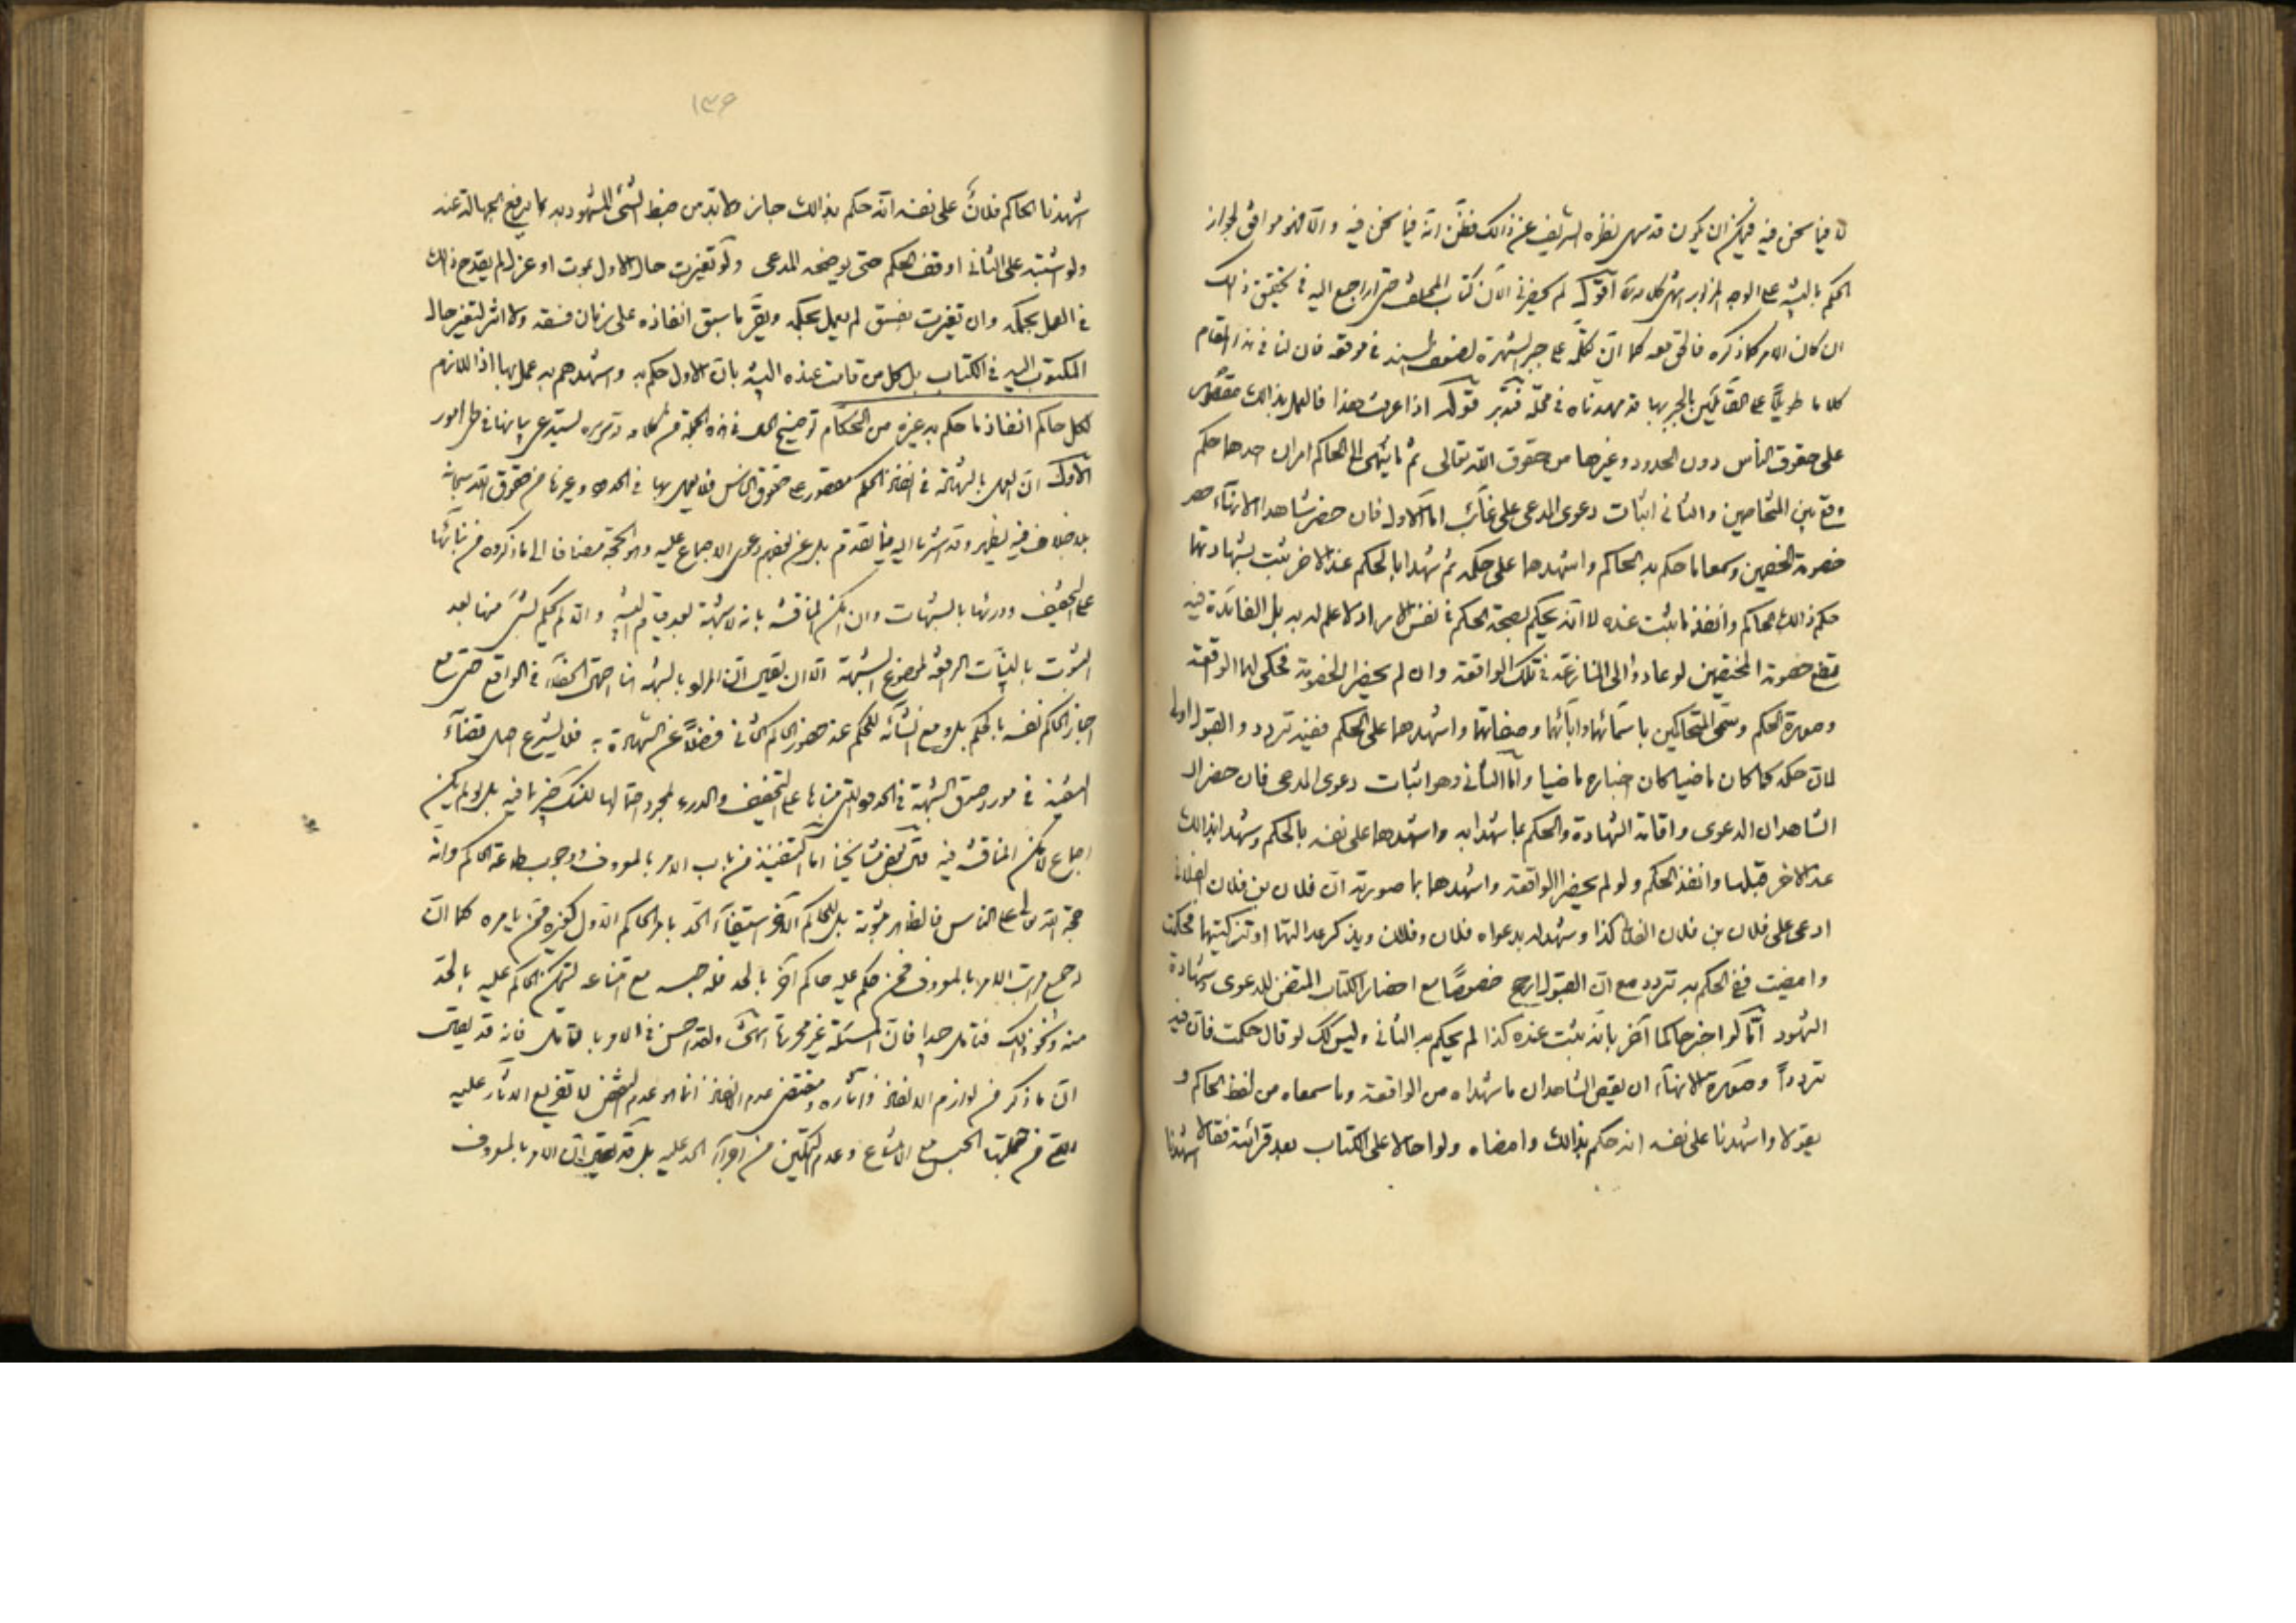 لا فيما نحن فيه فيمكن ان يكون قد سهى نظره الشريف عن ذالك فظن انه فيما نحن فيه والا فهو موافق لجواز
الحكم بالبينة على الوجه المزبور انتهى كلامه اقول لم يحضرني الآن كتاب المختلف حتى اراجع اليه في تحقيق ذالك
ان كان الامر كما ذكره فالحق معه كما ان تكلّمه على جبر الشهرة لضعف السند في موقعه فان لنا في هذا المقام
كلاما طويلا على القائلين بالجبر بها قد مهدناه في محله فتدبر قوله اذا عرفت هذا فالعمل بذالك مقصور
على حقوق الناس دون الحدود وغيرها من حقوق الله تعالى ثم ما ينهى الى الحاكم امران احدهما حكم
وقع بين المتخاصمين والثاني اثبات دعوى المدعى على غائب اما الاول فان حضر شاهدا الانهاء
خصومة الخصمين وسمعا ما حكم به الحاكم واشهدهما على حكمه ثم شهدا بالحكم عند الاخر يثبت بشهادتهما
حكم ذالك الحاكم وانفذ ما ثبت عنده لا انه يحكم بصحة الحكم في نفس الامر اذ لا علم له به بل الفائدة فيه
قطع خصومة المختصمين لو عاودا الى المنازعة في تلك الواقعة وان لم يحضرا الخصومة فحكى لهما الواقعة
وصورة الحكم وسمى المتحاكمين باسمائهما وآبائهما وصفاتهما واشهدهما على الحكم ففيه تردد والقبول اولى
لان حكمه كما كان ماضيا كان اخباره ماضيا واما الثاني وهو اثبات دعوى المدعى فان حضر الـ
الشاهدان الدعوى واقامة الشهادة والحكم بما شهدا به واشهدهما على نفسه بالحكم وشهدا بذالك
عند الاخر قبلها وانفذ الحكم ولو لم يحضرا الواقعة واشهدهما بما صورته ان فلان بن فلان الفلانى
ادعى على فلان بن فلان الفلانى كذا وشهد له بدعواه فلان وفلان ويذكر عدالتهما او تزكيتهما فحكمت
وامضيت ففي الحكم به تردد مع ان القبول ارجح خصوصًا مع احضار الكتاب المتضمن للدعوى وشهادة
الشهود امّا لو اخبر حاكما آخر بانه ثبت عنده كذا لم يحكم به الثاني وليس كك لو قال حكمت فان فيه
ترددا وصورة الانهاء ان يقص الشاهدان ما شهداه من الواقعة وما سمعاه من لفظ الحاكم و
يقولا واشهدنا على نفسه انه حكم بذالك وامضاه ولو احالا على الكتاب بعد قرائته فقالا اشهدنا
١٣٤
اشهدنا الحاكم فلان على نفسه انه حكم بذالك جاز ولا بد من ضبط الشئ المشهود به بما يرفع الجهالة عنه
ولو اشتبه على الثاني اوقف الحكم حتى يوضحه المدعى ولو تغيرت حال الاول بموت او عزل لم يقدح ذالك
في العمل بحكمه وان تغيرت بفسق لم يعمل بحكمه ويقر ما سبق انفاذه على زمان فسقه ولا اثر لتغير حال
المكتوب اليه في الكتاب بل كل من قامت عنده البينة بان الاول حكم به واشهدهم به عمل بها اذ اللازم
لكل حاكم انفاذ ما حكم به غيره من الحكام توضيح الحال في هذه الجملة من كلامه وتحريره يستدعى بيانها في طى امور
الاول ان العمل بالشهادة في انفاذ الحكم مقصور على حقوق الناس فلا يعمل بها في الحدود وغيرها من حقوق الله سبحانه
بلا خلاف فيه يظهر وقد اشرنا اليه فيما تقدم بل عن بعضهم دعوى الاجماع عليه وهو الحجة مضافا الى ما ذكروه من بنائها
على التخفيف ودرئها بالشبهات وان امكن المناقشة بانه لا شبهة بعد قيام البينة والا لم يحكم بشئ منها بعد
الثبوت بالبينات الرافعة لموضوع الشبهة الا ان يقال ان المراد بالشبهة هنا احتمال الخطاء في الواقع حتى مع
اخبار الحاكم نفسه بالحكم بل ومع انشائه للحكم عند حضور الحاكم الثاني فضلًا عن الشهادة به فلا يشرع اصل قضاء
التنفيذ في مورد صدق الشبهة في الحدود التي بناءها على التخفيف والدرء لمجرد احتمالها لكنك خبير بما فيه بل لو لم يكن
اجماع لامكن المناقشة فيه قال بعض مشايخنا اما التنفيذ من باب الامر بالمعروف ووجوب طاعة الحاكم وانه
حجة الله على الناس فالظاهر ثبوته بل للحاكم الآخر استيفاء الحد بامر الحاكم الاول كغيره ممن يامره كما ان
له جميع مراتب الامر بالمعروف فمن حكم عليه حاكم آخر بالحد فله حبسه مع امتناعه ليتمكن الحاكم عليه بالحد
منه ونحو ذالك فتامل جيدا فان المسئلة غير محررة انتهى ولقد احسن في الامر بالتامل فانه قد يقال
ان ما ذكر من لوازم الانفاذ وآثاره ومقتضى عدم الانفاذ انما هو عدم تفريع الآثار عليه
التي من جملتها الحبس مع الامتناع وعدم التمكين من اجراء الحد عليه بل قد يقال ان الامر بالمعروف